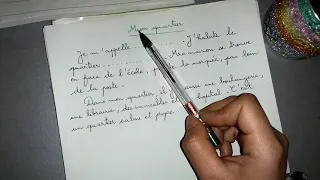 Mon quartier
Je m'appelle ............. J'habite le
quartier ............. Ma maison se trouve
en face de l'école, de la mosquée, pas loin
de la poste.
Dans mon quartier, il y aussi une boulangerie,
une librairie, des immeubles et hôpital. C'est
un quartier calme et propre.